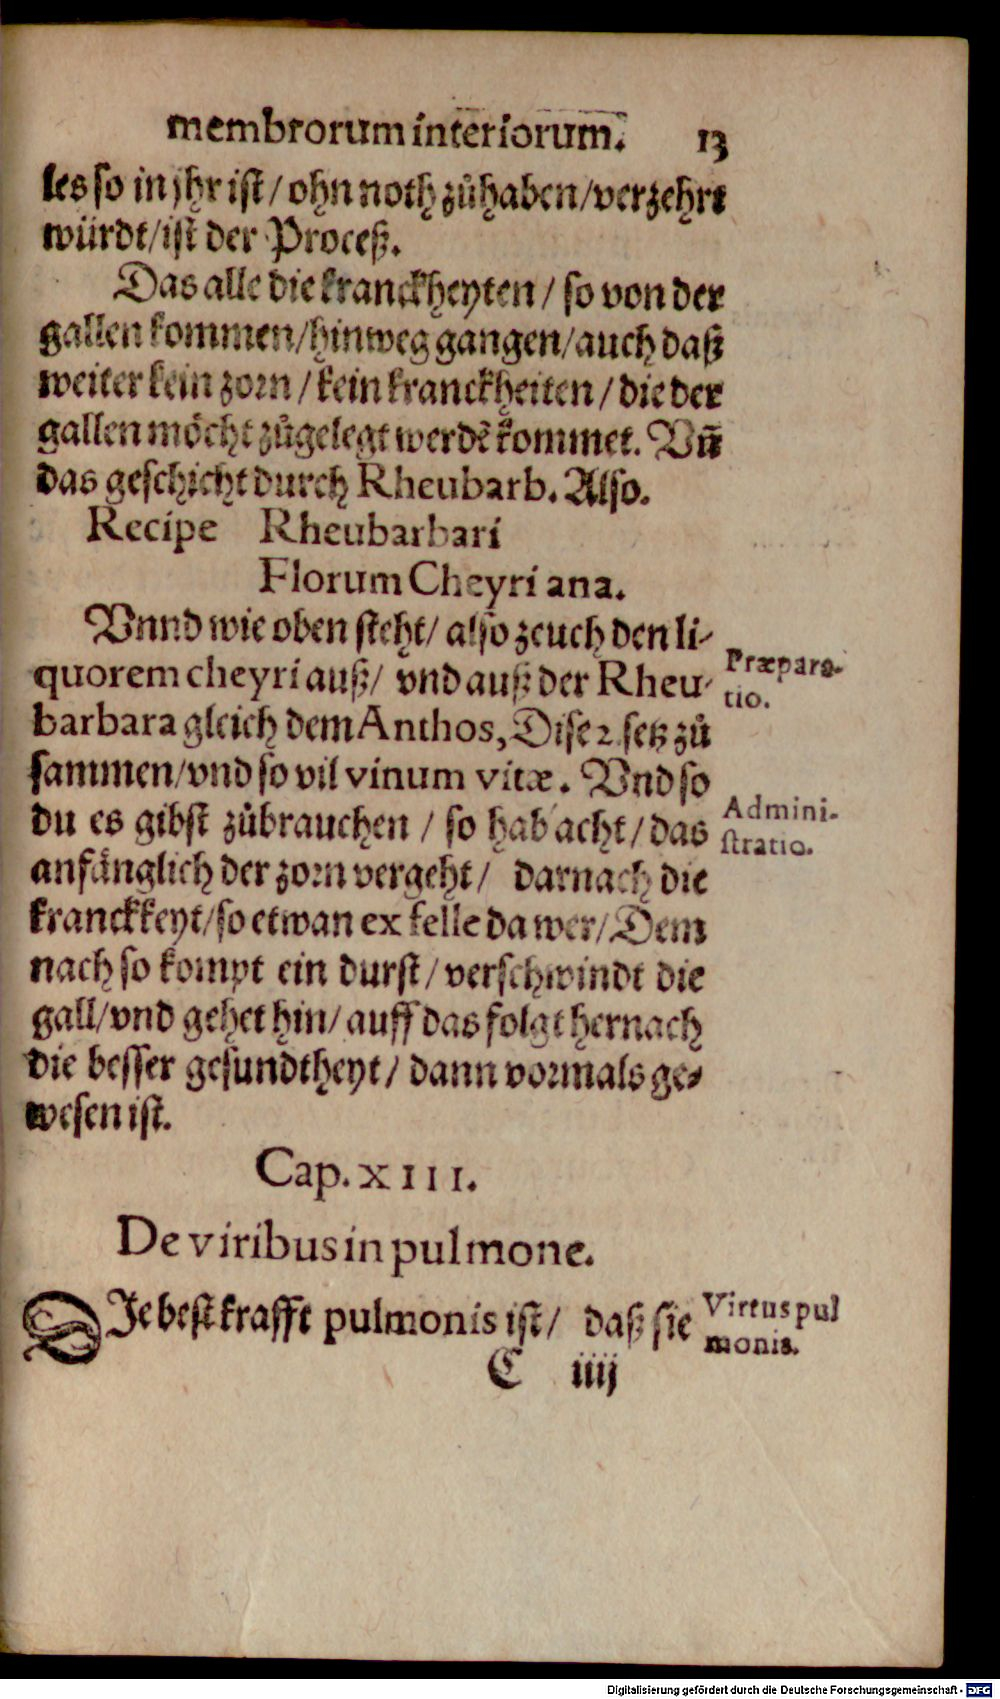 membrorum interiorum. 13
les so in jhr ist / ohn noth zůhaben / verzehrt
würdt / ist der Proceß.
Das alle die kranckheyten / so von der
gallen kommen / hinweg gangen / auch daß
weiter kein zorn / kein kranckheiten / die der
gallen möcht zůgelegt werdẽ kommet. Vñ
das geschicht durch Rheubarb. Also.
Recipe Rheubarbari
Florum Cheyri ana.
Vnnd wie oben steht / also zeuch den li-
quorem cheyri auß / vnd auß der Rheu-
Præpara-
tio.
barbara gleich dem Anthos, Dise 2. setz zů
sammen / vnd so vil vinum vitæ. Vnd so
du es gibst zůbrauchen / so hab acht / das
Admini-
stratio.
anfänglich der zorn vergeht / darnach die
kranckkeyt / so etwan ex felle da wer / Dem
nach so kompt ein durst / verschwindt die
gall / vnd gehet hin / auff das folgt hernach
die besser gesundtheyt / dann vormals ge-
wesen ist.
Cap. XIII.
De viribus in pulmone.
DIe best krafft pulmonis ist / daß sie
Virtus pul
monis.
C iiij
Digitalisierung gefördert durch die Deutsche Forschungsgemeinschaft - DFG